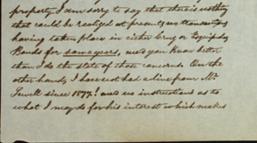 property I am sorry to say that there is nothing
that could be realized at present, no transactions
having taken place in either Cruz or
Bonds for some years, and you know better
than I do the state of those concerns. On the
other hand, I have not had a line from Mr.
Jewell since 1877! and no instructions as to
what I may do for his interest which makes